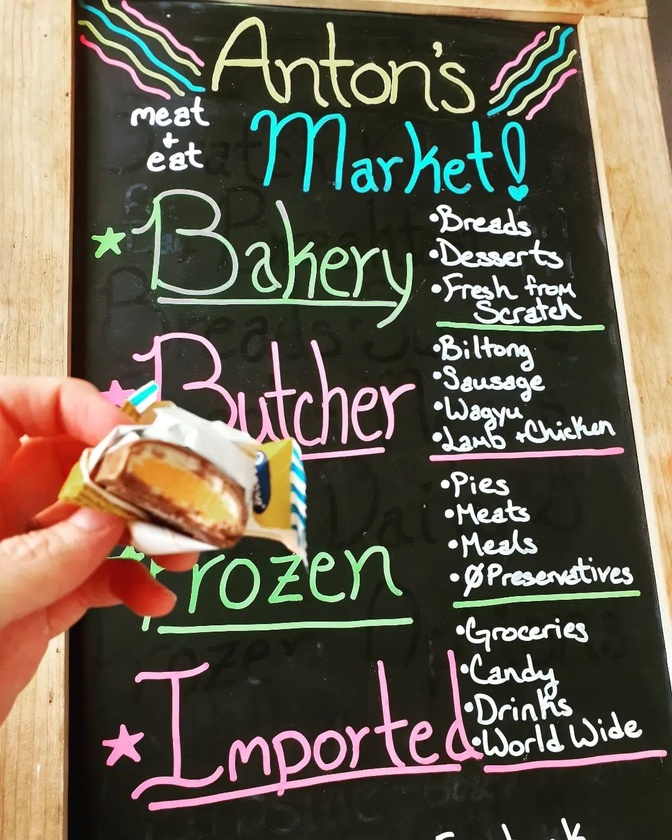 Anton's
meat
+
eat
Market!
Bakery
•Breads
•Desserts
•Fresh from
Scratch
Butcher
•Biltong
•Sausage
•Wagyu
•Lamb + Chicken
Frozen
•Pies
•Meats
•Meals
•Ø Preservatives
Imported
•Groceries
•Candy
•Drinks
•World Wide